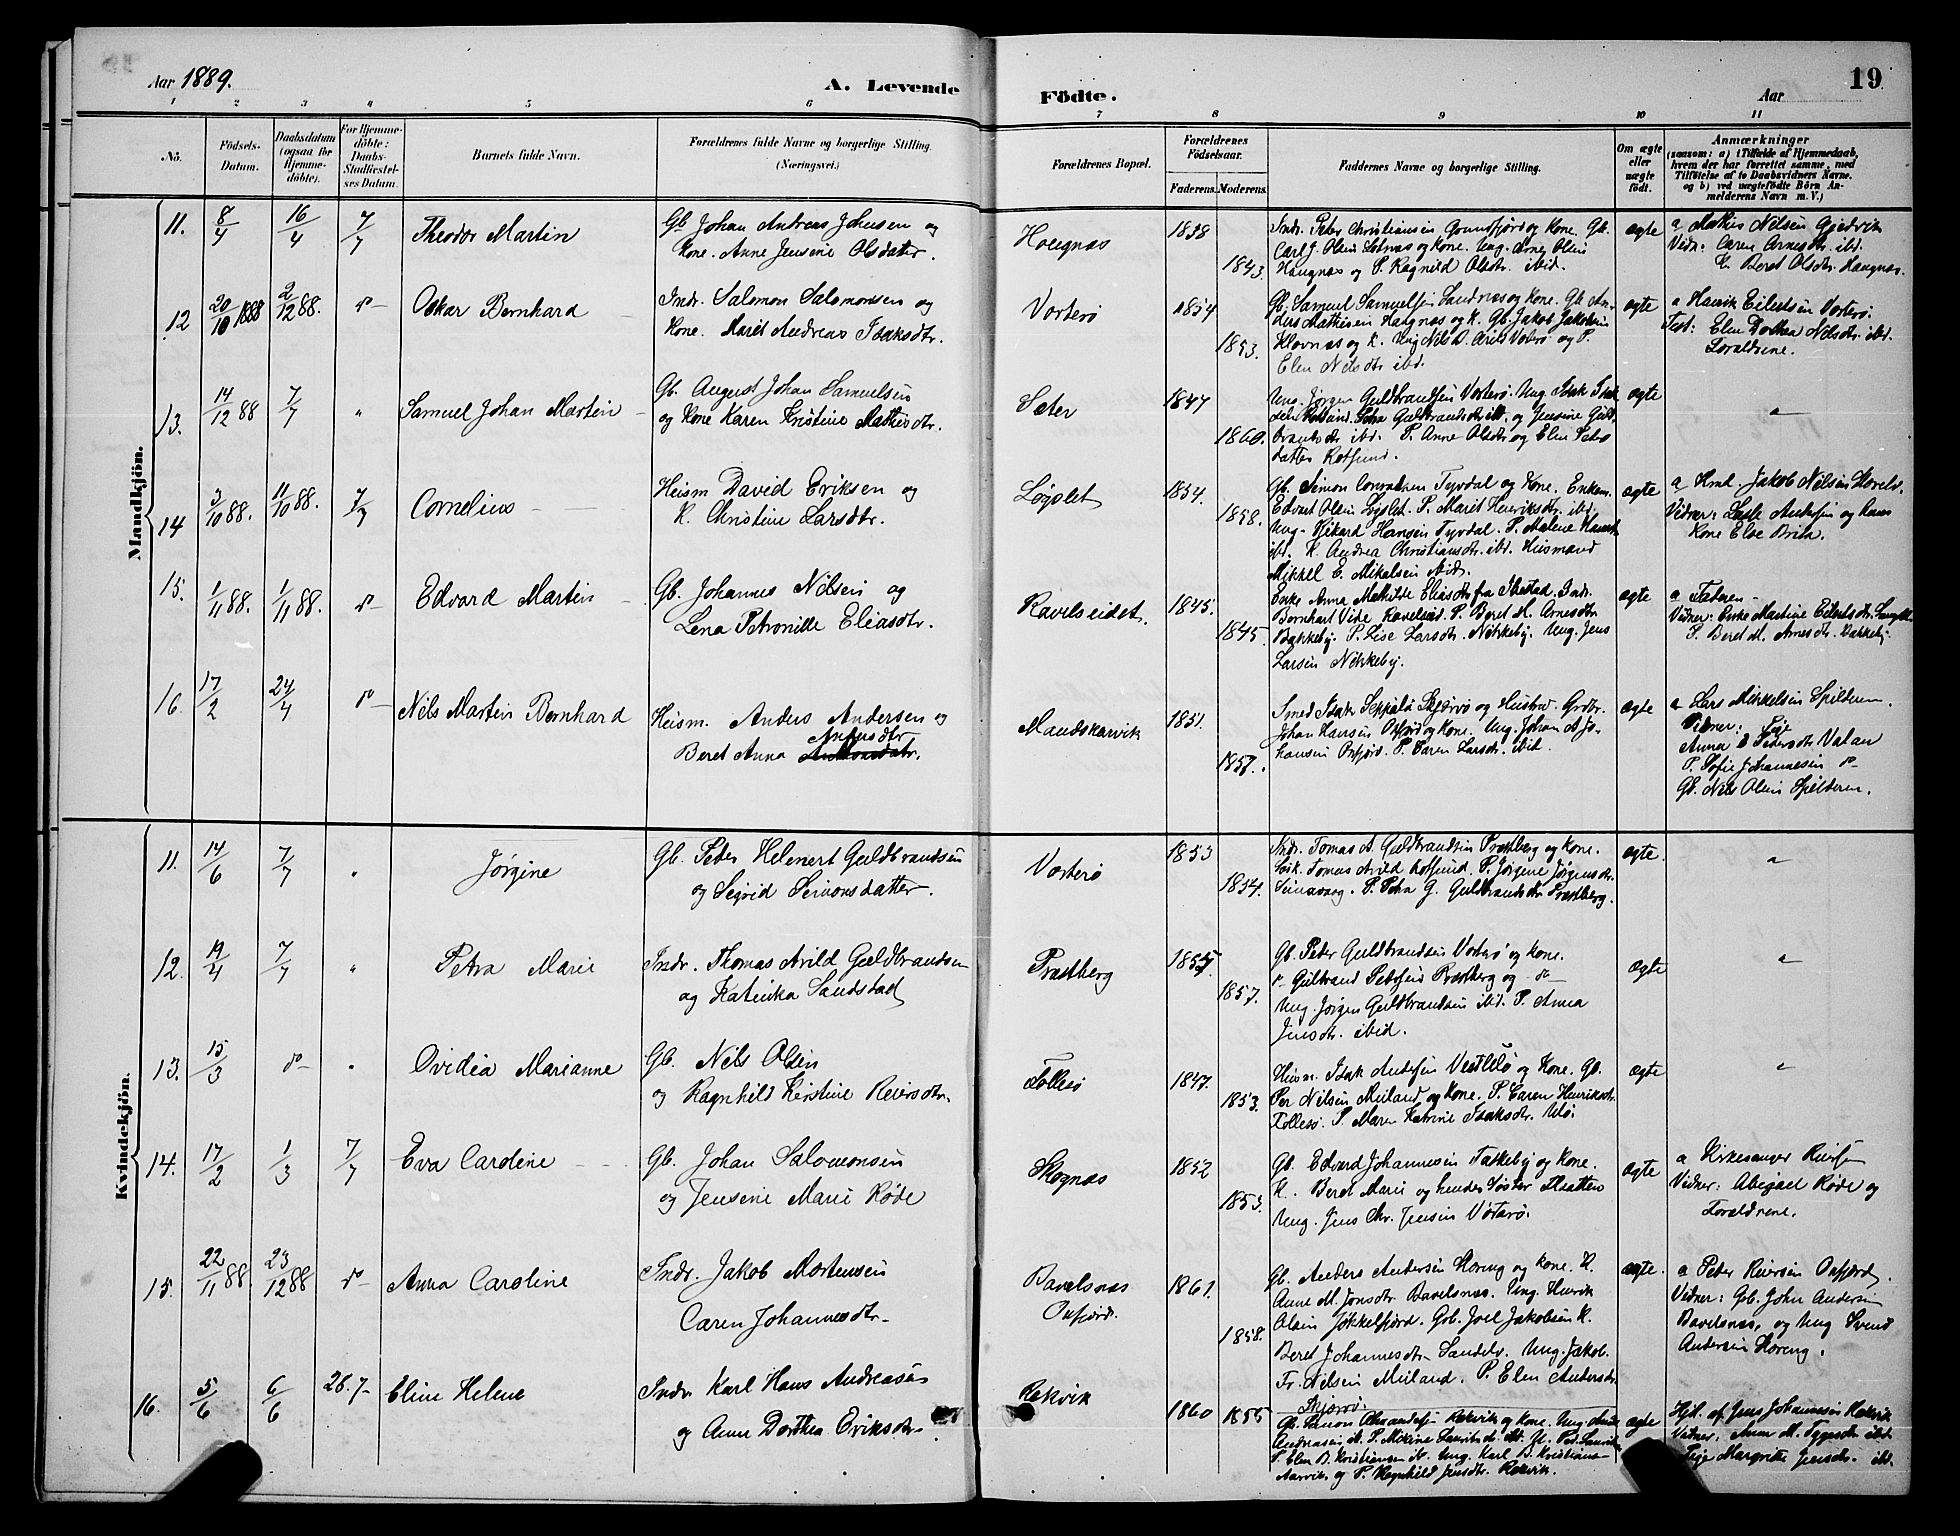 Aar 1889.
A. Levende
Födte.
Aar
19
1 2 3 4 5 6 7 8 9 10 11
No.
Födsels-
Datum.
Daabsdatum
(ogsaa för
Hjemme-
döbte).
For Hjemme-
döbte:
Daabs-
Stadfæstel-
ses Datum.
Barnets fulde Navn.
Forældrenes fulde Navne og borgerlige Stilling.
(Næringsvei.)
Forældrenes Bopæl.
Forældrenes
Födselsaar.
Faderens.
Moderens.
Faddernes Navne og borgerlige Stilling.
Om ægte
eller
uægte
födt.
Anmærkninger
(saasom: a) i Tilfælde af Hjemmedaab,
hvem der har forrettet samme, med
Tilföielse af to Daabsvidners Navne.
og b) ved uægtefödte Börn An-
melderens Navn m. V.)
Mandkjön.
11. 8/4 16/4 7/7 Theodor Martin
Gb. Johan Andreas Johnsen og
Kone. Anne Jensine Olsdater.
Hougnæs
1838
1843.
Indr. Peter Christiansen Grundfjord og Kone. Gb.
Carl J. Olsen Sotnæs og Kone. Ung. Arne Olsen
Haugnæs og P. Ragnild Olsdtr. ibid.
ægte
a Mathis Nilsen Gjedvik
Vidn: Caren Arnesdtr. ibd.
K. Beret Olsdtr. Haugnæs.
12 20/10 1888 2/12 88. do Oskar Bernhard
Indr. Salomon Salomonsen og
Kone. Marit Andreas Isaksdtr.
Vorterö
1854
1853.
Gb. Samuel Samuelsen Sandnæs og Kone. Gb. An-
ders Mathisen Haugnæs og K. Gb. Jakob Jakobsen
Klovnæs og K. Ung Nils D. Arild Vorterö og P.
Elen Nilsdtr ibd.
ægte
a Henrik Eilertsen Vorterö.
Test: Elen Dorthea Nilsdtr. ibd.
Forældrene.
13. 14/12 88 7/7 " Samuel Johan Martin
Gb. August Johan Samuelsen
og Kone Karen Kristine Mathisdtr.
Sæter
1847
1860.
Ung. Jörgen Guldbrandsen Vorterö. Ung. Isak Isak-
Guldbrandsdtr. ibd. og Jensine Guld-
brandsdtr ibid. P. Anne Olsdtr og Elen Peters
datter Rotsund.
ægte
"
14 3/10 88. 11/10 88. 7/7 Cornelius
Heism David Eriksen og
K. Christine Larsdtr.
Lögslet
1854.
1858.
Gb. Simon Conradsen Tyrdal og Kone. Enkem.
Edvart Olsen Lögslet. P. Marit Henriksdtr. ibd.
Ung. Rikard Hansen Tyrdal. P. Malene Hansdtr
ibd. K. Andrea Christiansdtr. ibd. Husmand
Mikkel E. Mikalsen ibid.
ægte
a Hmd. Jakob Nilsen
Vidner: Lasse og hans
Kone Elve Brita.
15. 1/11 88. 1/11 88. do Edvard Martin
Gb. Johannes Nilsen og
Lena Petronille Eliasdtr.
Ravelseidet.
1845.
1845
Enke Anna Mathilde Eliasdtr fra Ibestad. Indr.
Bernhart Vide Ravelseid. P. Beret M. Arnesdtr
Bakkeby. P. Lise Larsdtr. Nikkeby. Ung. Jens
Larsen Nikkeby.
ægte
a Faderen -
Vidner: Enke Martine Eilertsdtr.
P. Beret M. Arnesdtr. Bakkeby
16. 17/2 24/4 do Nils Martin Bernhard
Heism. Anders Andersen og
Beret Anna
Maudskarvik
1851.
1857.
Smed Isak Seppälä Skjervö og Hustru. Grdbr.
Johan Hansen Oxfjord og Kone. Ung. Johan A. Jo-
hansen Oxfjord. P. Caren Larsdtr. ibid.
ægte
a Lars Mikkelsen Spilderen.
Vidner: Pige
Anna Pedersdtr. Valan
P. Sofie Johannesen do
Gb. Nils Olsen Spilderen.
Kvindekjön.
11. 14/6 7/7 " Jørgine
Gb. Peder Helmert Guldbrandsen
og Sigrid Simonsdatter.
Vorterö
1853
1854.
Indr. Tomas A. Guldbrandsen Præstberg og Kone.
Tomas Arild Rotsund. P. Jörgine Jörgensdtr.
P. Petra G. Guldbrandsdtr Præstberg.
ægte.
"
12. 19/4 7/7 " Petra Marie
Indr. Thomas Arild Guldbrandsen
og Katinka Sandstad
Præstberg
1855
1857.
Gb. Peter Guldbrandsen Vorterö og Kone.
do Gulbrand Petersen Præstberg og do
Ung. Jörgen Guldbrandsen ibd. P. Anna
Jensdtr. ibid.
ægte
"
13. 15/3 do " Ovidia Marianne
Gb. Nils Olsen
og Ragnhild Kirstine Reiersdtr.
Follesö
1847.
1853.
Heism. Isak Andersen Vestlelö og Kone. Gb.
Per Nilsen Meiland og Kone. P. Caren Henriksdtr
Follesö. P. Maren Katrine Isaksdtr. Ulö.
ægte
"
14. 17/2 1/3 7/7 Eva Caroline
Gb. Johan Salomonsen
og Jensine Marie Røde
Skognæs
1852
1853.
Gb. Edvard Johannesen Takkeby og Kone.
K. Beret Marie og hendes Söster
Ung. Jens Chr. Jensen Vorterö.
ægte
a Kirkesanger
Vidner: Abigael Røde og
Forældrene.
15. 22/11 88. 23/12 88 do Anna Caroline
Indr. Jakob Mortensen
Caren Johannesdtr.
Bavelsnæs
Oxfjord.
1861.
1858.
Gb. Anders Andersen Storeng og Kone. K.
Anne M. Jonsdtr. Bavelsnæs. Ung. Henrik
Olsen Jökkelfjord. Gb. Joel Jakobsen K.
Beret Johannesdtr. Ung. Jakob
Fr. Nilsen Meiland. P. Elen Andersdtr.
Skjervö.
ægte.
a Peder Reiersen Oxfjord.
Vidner: Gb. John Andersen
Bavelsnæs, og Ung Svend
Andersen Storeng.
16. 5/6 6/6 28.7 Eline Helene
Indr. Karl Hans Andreasen
og Anne Dorthea Eriksdtr.
Rekvik
1860 1855
Gb. Simon Rekvik og Kone. Ung.
Andreasen ibd.
P. Elen B. Kristiansen ibd. Ung. Karl B. Kristiansen
Aarvik og P. Ragnhild Jensdtr. Rekvik.
ægte
Hjd. af Jens Johannesen Rekvik
Vidner: Anne M.
Pige Margrethe Jensdtr. ibd.